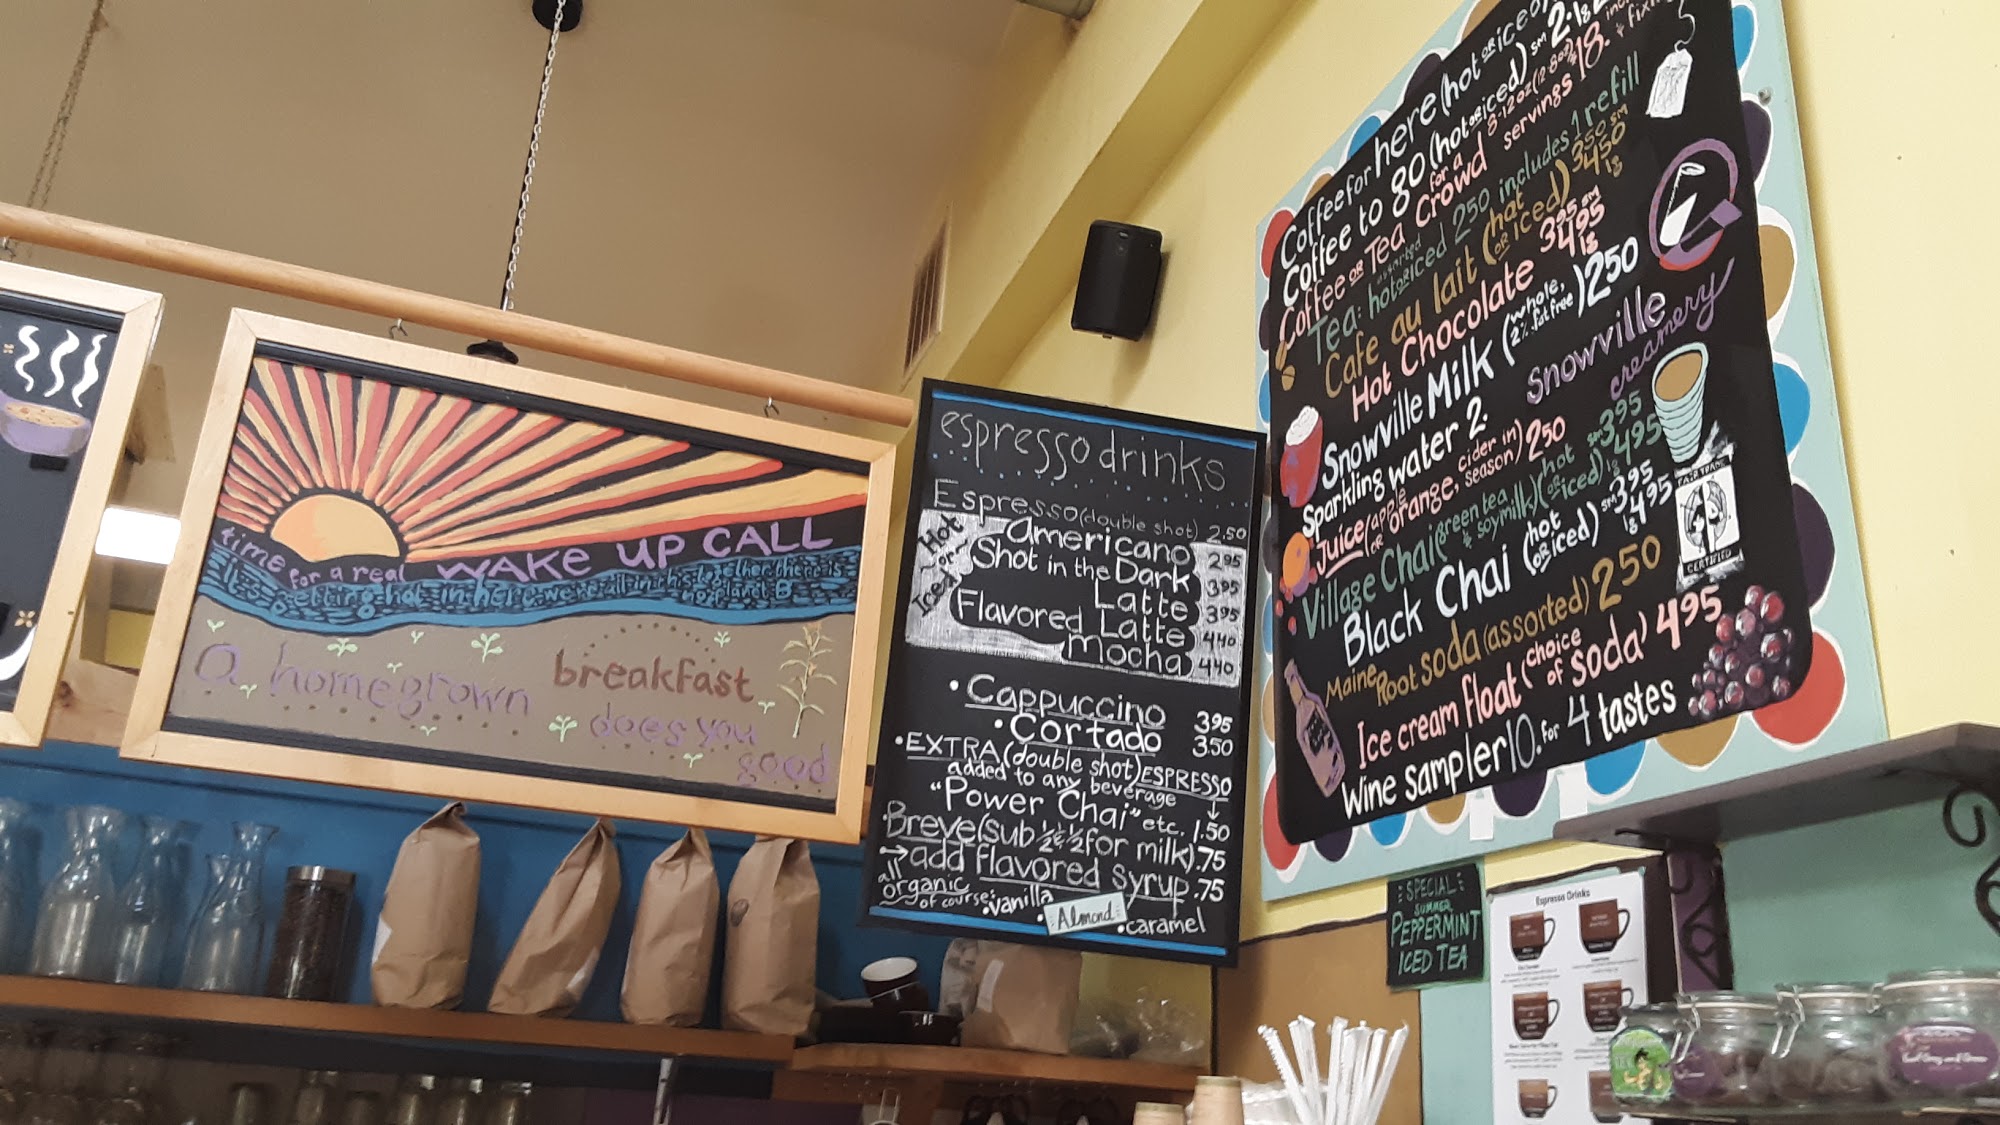 time for a real WAKE UP CALL
it's getting hot in here. we're all in this together. there is no planet B
a homegrown breakfast
does you
good
espresso drinks
Espresso (double shot) 2.50
Hot or Iced
Americano 2.95
Shot in the Dark 3.95
Latte 3.95
Flavored Latte 4.40
Mocha 4.40
• Cappuccino 3.95
• Cortado 3.50
• EXTRA (double shot) ESPRESSO
added to any beverage
"Power Chai" etc. 1.50
• Breve (sub ½ & ½ for milk) .75
→ add flavored syrup .75
all organic of course: • vanilla
• Almond • caramel
Coffee for here (hot OR iced)
Coffee to go (hot OR iced) sm 2.
Coffee OR Tea for a Crowd 8-12oz servings $18.
Tea: assorted hot OR iced 250 includes 1 refill
Cafe au lait (hot OR iced) 350 sm 450 lg
Hot Chocolate 395 sm 495 lg
Snowville Milk (whole, 2%, fat free) 250
Snowville creamery
Sparkling water 2.
Juice (apple OR orange, cider in season) 250
Village Chai (green tea & soymilk) (hot OR iced) sm 395 lg 495
Black Chai (hot OR iced) sm 395 lg 495
FAIR TRADE CERTIFIED
Maine Root soda (assorted) 250
Ice cream float (choice of soda) 495
Wine sampler 10. for 4 tastes
SPECIAL
SUMMER
PEPPERMINT
ICED TEA
Espresso Drinks